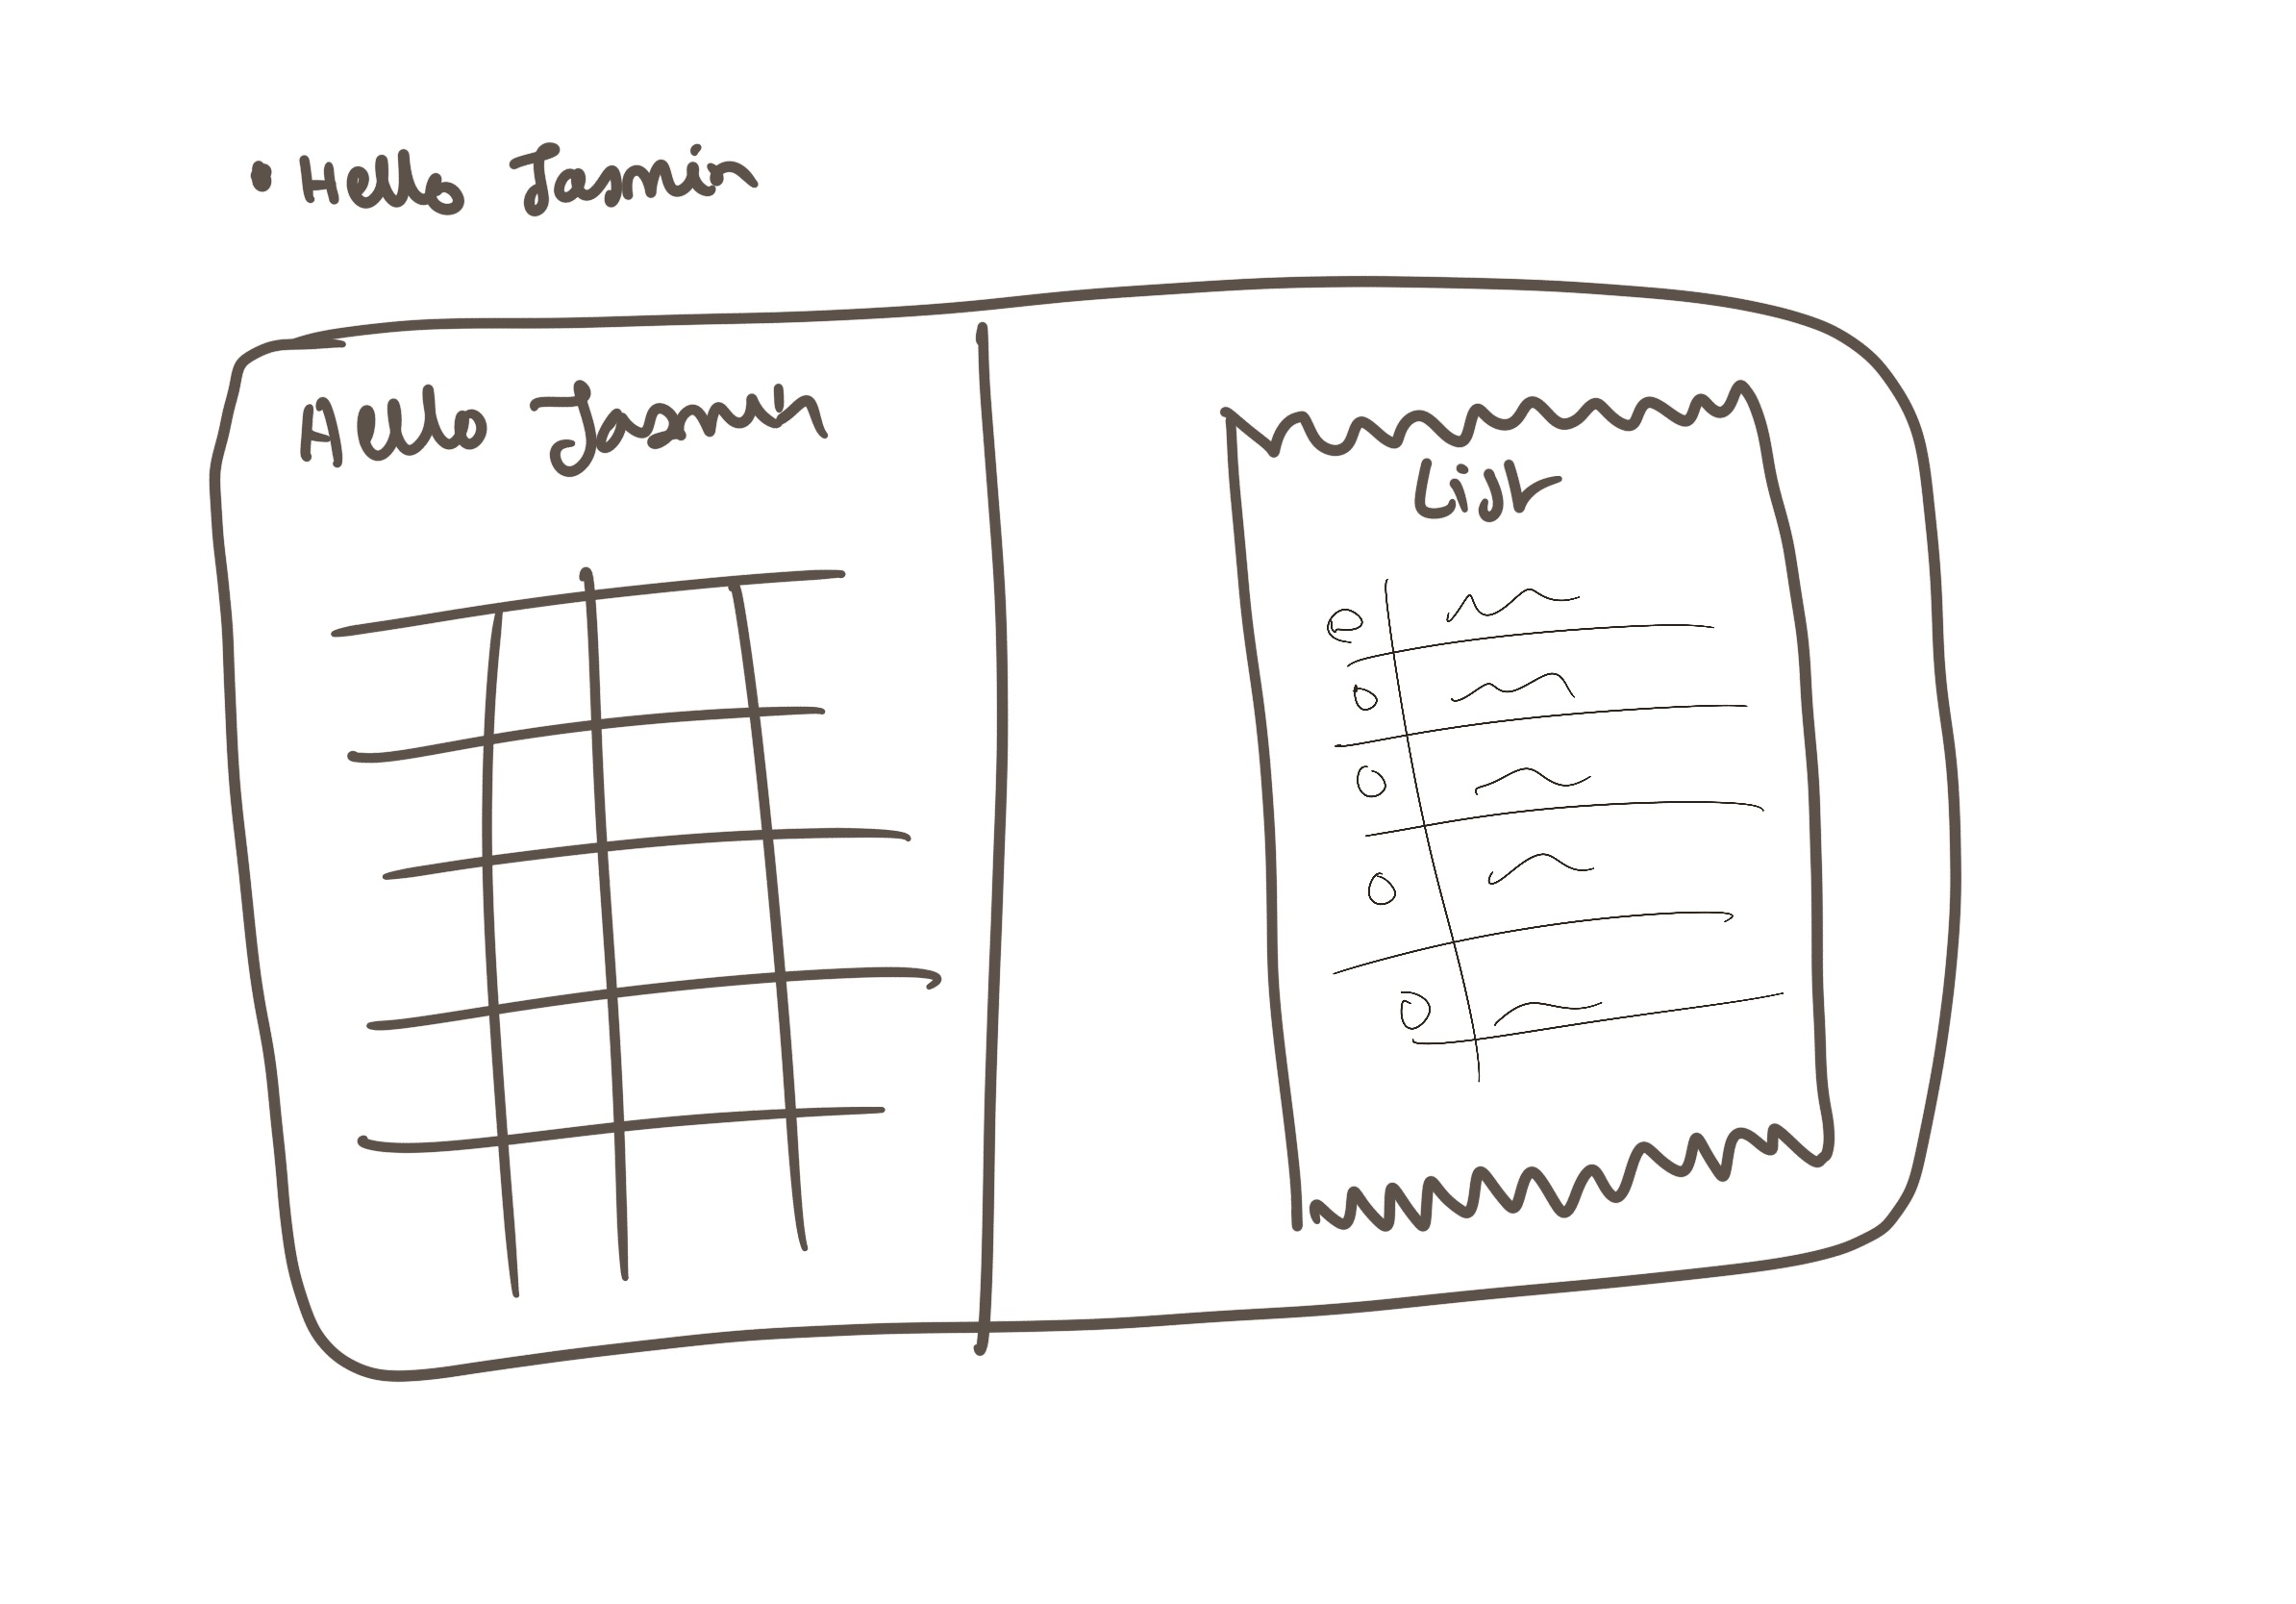 • Hello Jasmin
Hello Jasmin
List